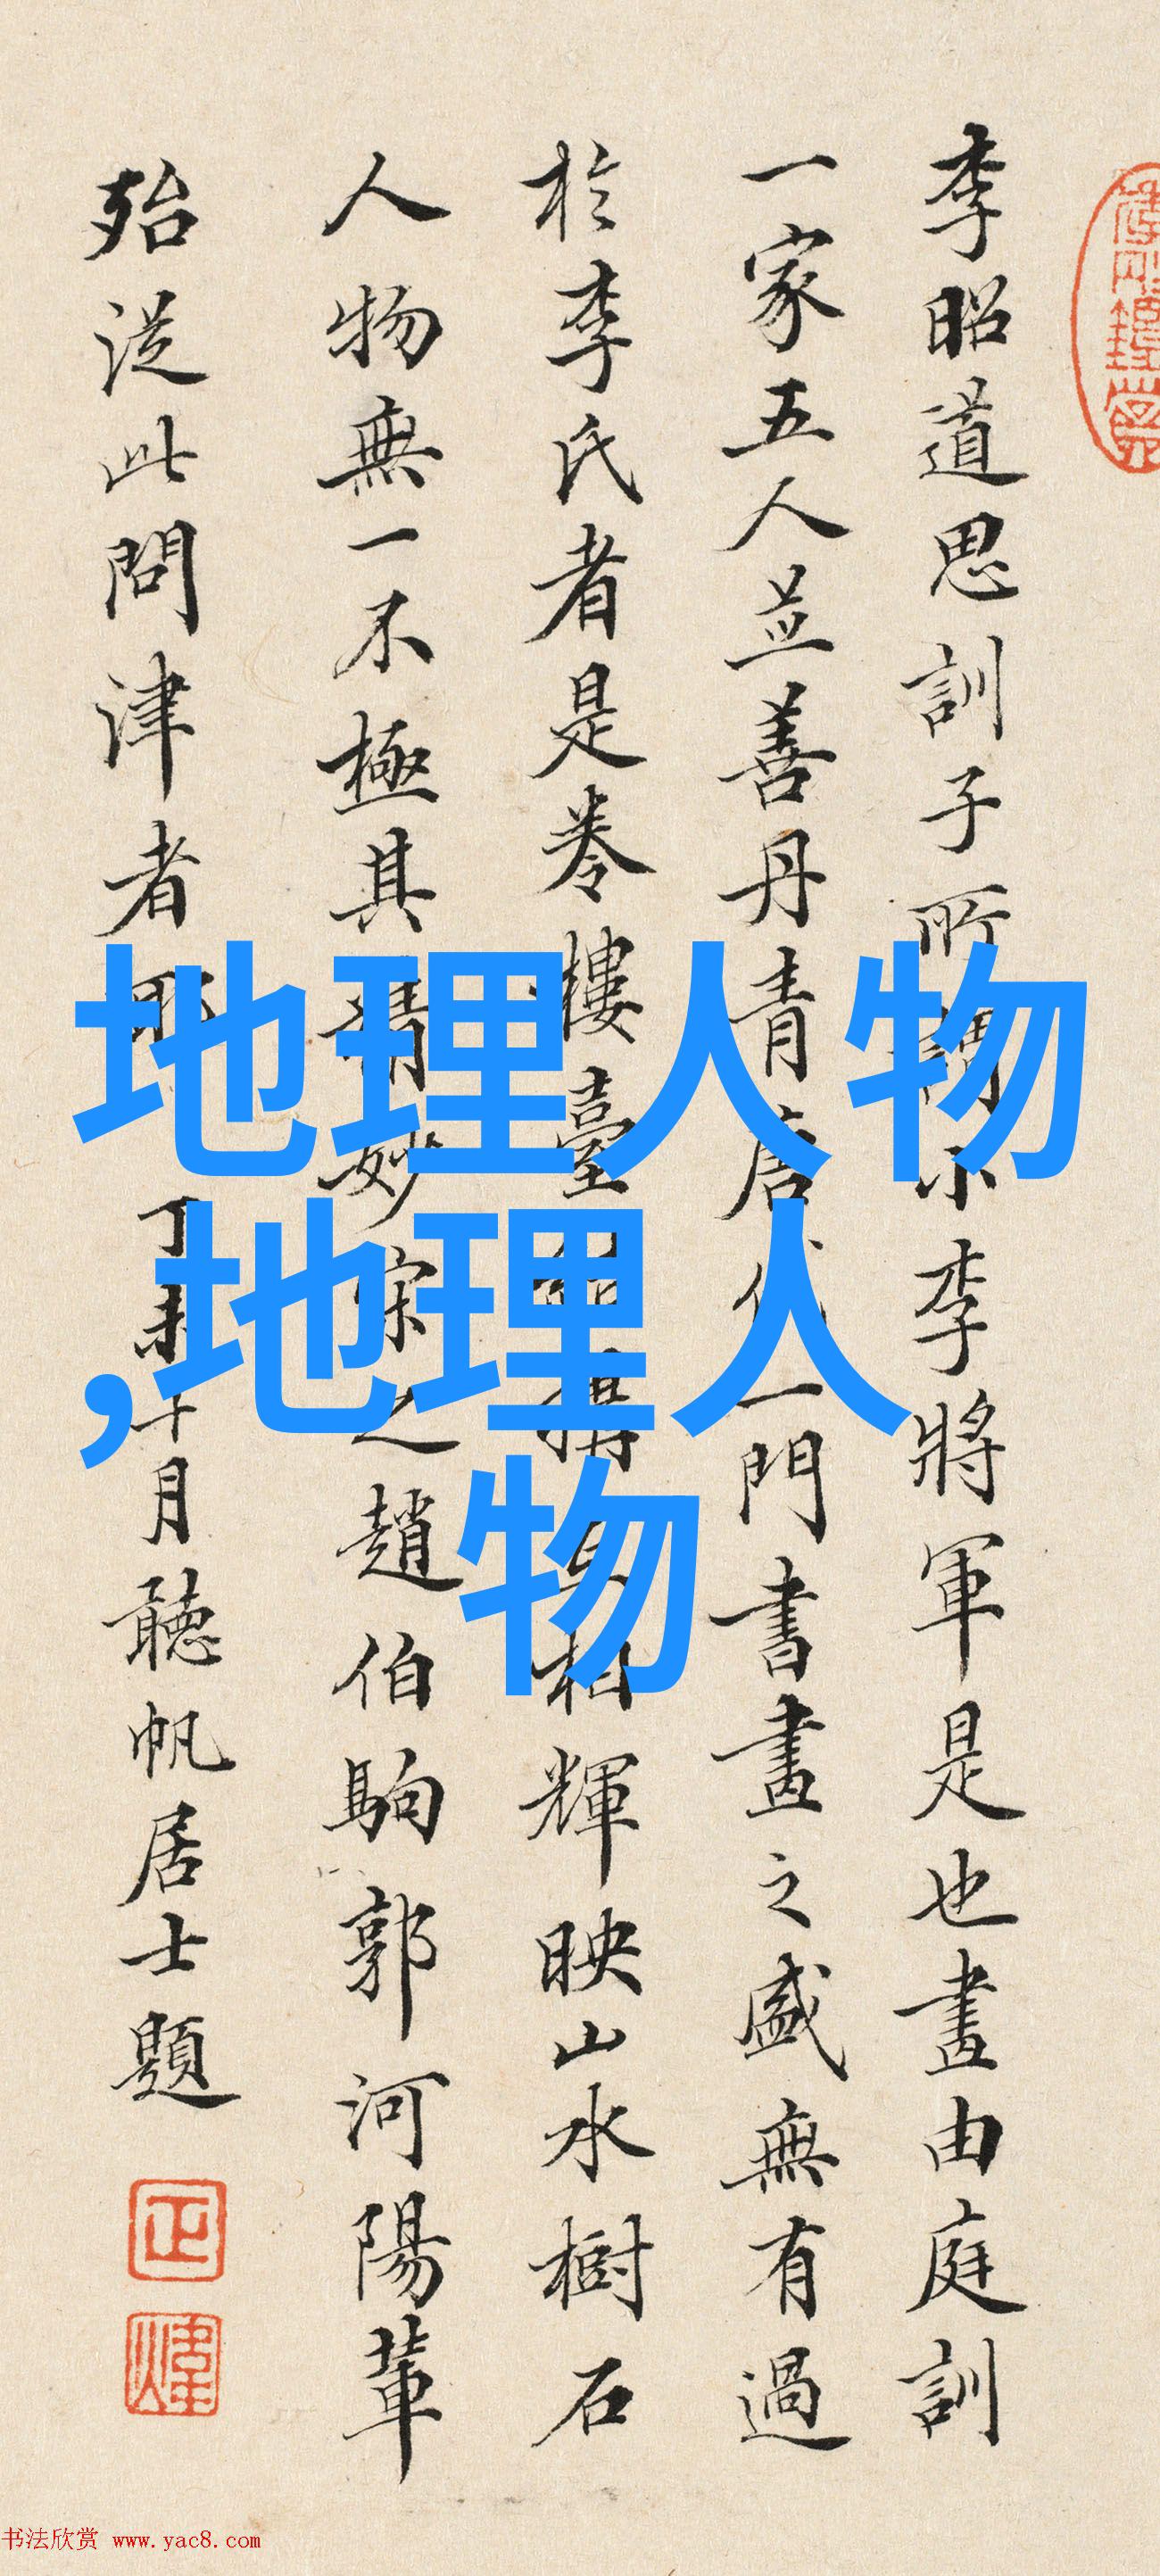 李昭道思訓子所謂小李將軍是也畫由庭訓
一家五人並善丹青唐代一門書畫之盛無有過
於李氏者是卷樓臺相輝映山水樹石
人物無一不極其精妙宋之趙伯駒郭河陽輩
殆從此問津者耶 丁未十月聽帆居士題
地理人物
,地理人
物
书法欣赏 www.yac8.com